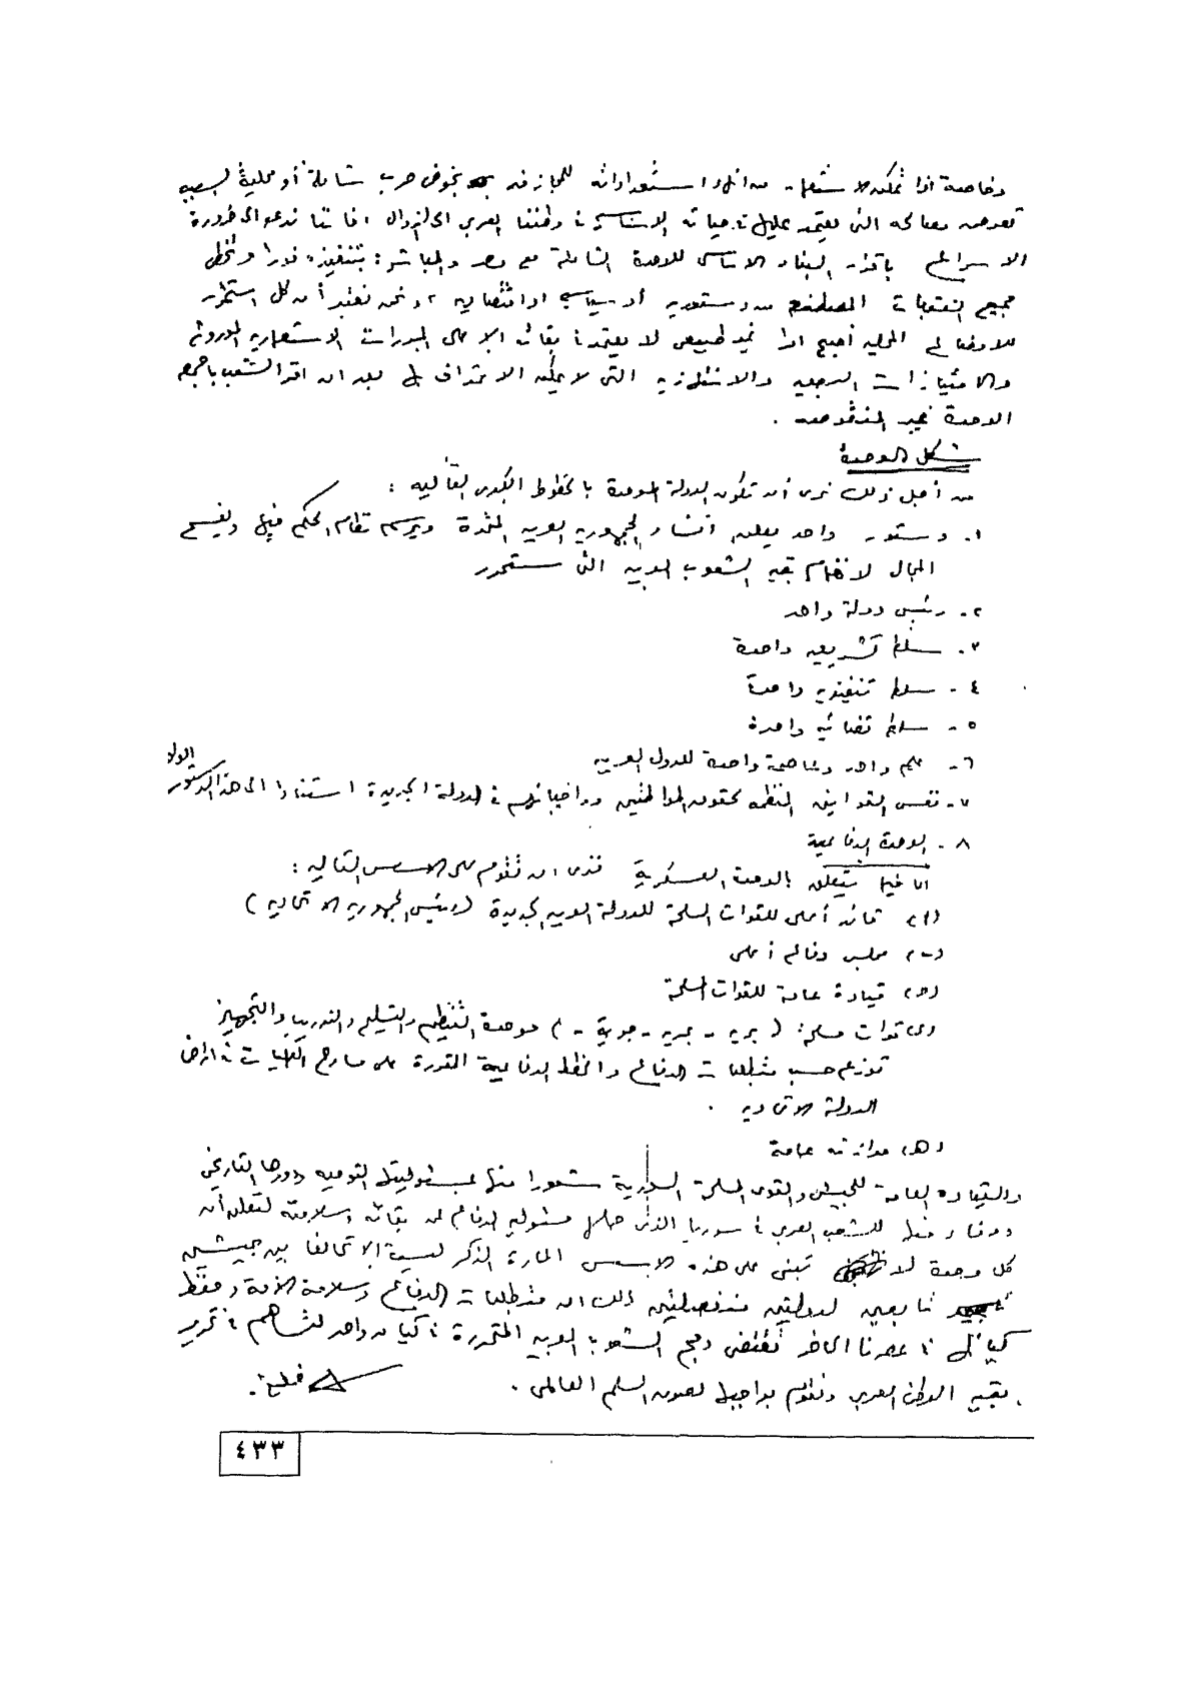 وخاصة اذا تمكن الاستعمار من انهاء استعداداته للمجازفة بخوض حرب شاملة أو محلية بسبب
تعرض مصالحه التي يعتمد عليها في حياته الاساسية في وطننا العربي الى الزوال فاننا ندعو الى ضرورة
الاسراع باقرار البناء الاساسي للوحدة الشاملة مع مصر والمباشرة بتنفيذه فورا وتخطي
جميع العقبات المصطنعة من دستورية أو سياسية او اقتصادية ، ونحن نعتبر أن كل استمرار
للاوضاع الحالية أصبح امرا غير طبيعي لا يعتمد في بقائه الا على المبررات الاستعمارية الموروثة
والامتيازات الرجعية والانتهازية التي لا يمكن الاعتراف بها بعد ان اقر الشعب باجمعه
الوحدة غير المنقوصة .
شكل الوحدة
من أجل ذلك نرى أن تكون الدولة الموحدة بالخطوط الكبرى التالية :
١- دستور واحد يعلن انشاء الجمهورية العربية المتحدة ويرسم نظام الحكم فيها ويفسح
المجال لانضمام بقية الشعوب العربية التي ستتحرر
٢- رئيس دولة واحد
٣- سلطة تشريعية واحدة
٤- سلطة تنفيذية واحدة
٥- سلطة قضائية واحدة
٦- علم واحد وعاصمة واحدة للدول العربية
٧- نفس القوانين المنظمة لحقوق المواطنين وواجباتهم في الدولة الجديدة استنادا الى هذا الدستور
٨- الوحدة الدفاعية
اما فيما يتعلق بالوحدة العسكرية فنرى ان تقوم على الاسس التالية :
(أ) قائد أعلى للقوات المسلحة للدولة العربية الجديدة (رئيس الجمهورية الاتحادية)
(ب) مجلس دفاع أعلى
(ج) قيادة عامة للقوات المسلحة
(د) قوات مسلحة (برية - بحرية - جوية - ) موحدة التنظيم والتسليح والتدريب والتجهيز
توزع حسب متطلبات الدفاع والخطط الدفاعية المقررة على مسارح العمليات في اراضي
الدولة الاتحادية .
(هـ) موازنة عامة
والقيادة العامة للجيش والقوى المسلحة السورية شعورا منها بمسئوليتها القومية ودورها التاريخي
ووفاء منها للشعب العربي في سوريا الذي حملها مسئولية الدفاع عن بقائه وسلامته لتعلن أن
كل وحدة لا تبنى على هذه الاسس المارة الذكر ليست الا تحالفا بين جيشين
تابعين لدولتين منفصلتين ذلك ان متطلبات الدفاع وسلامة الامة وحفظ
كيانها في عصرنا الحاضر تقتضي دمج الشعوب العربية المتحررة في كيان واحد لتساهم في تحرير
بقية الوطن العربي وتقوم بواجبها لصون السلم العالمي .
٤٣٣